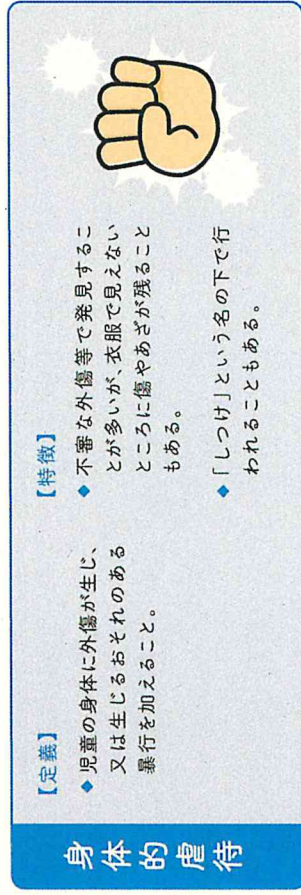 身体的虐待
【定義】
◆児童の身体に外傷が生じ、
又は生じるおそれのある
暴行を加えること。
【特徴】
◆不審な外傷等で発見するこ
とが多いが、衣服で見えない
ところに傷やあざが残ること
もある。
◆「しつけ」という名の下で行
われることもある。